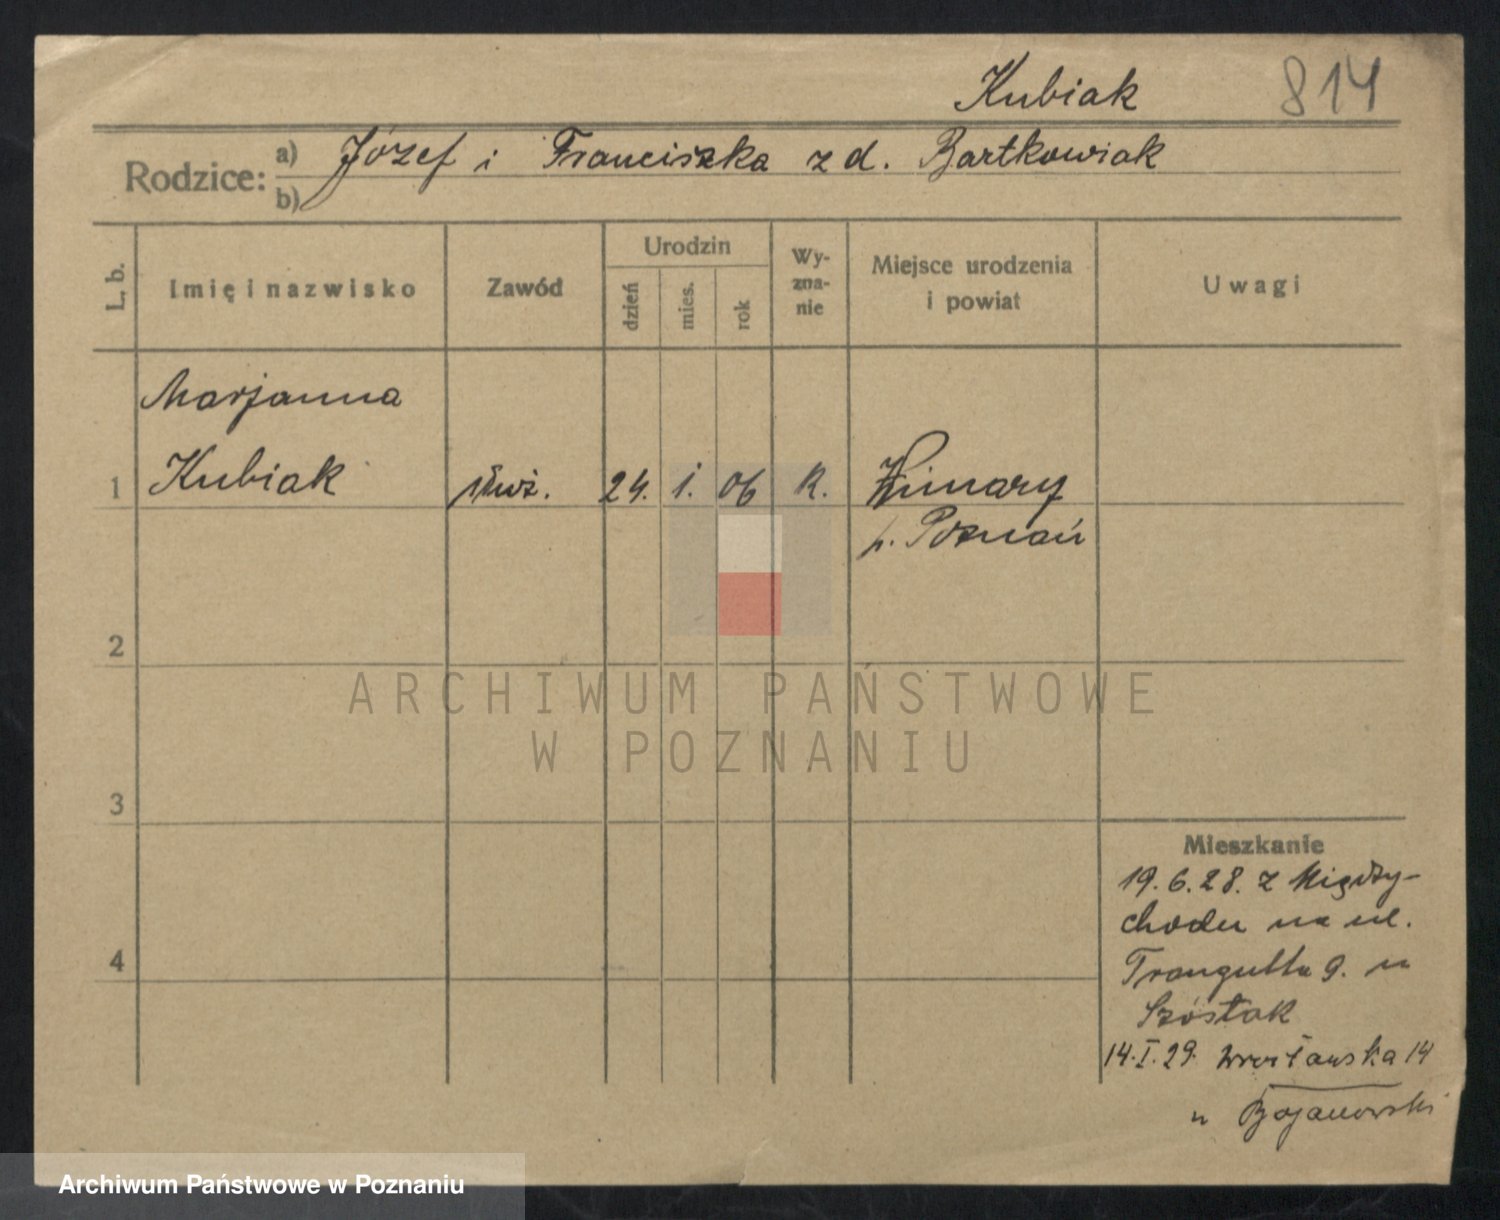 Kubiak 814
Rodzice: a) Józef i Franciszka z d. Bartkowiak
b)
L. b.
Imię i nazwisko
Zawód
Urodzin
dzień
mies.
rok
Wy-
zna-
nie
Miejsce urodzenia
i powiat
Uwagi
Marjanna
1 Kubiak służ. 24. 1. 06 R. Winiary
p. Poznań
2
3
4
Mieszkanie
19.6.28. z Między-
chodu na ul.
Traugutta 9. u
Szóstak
14.I.29. Wrocławska 14
u Bojanowski
ARCHIWUM PAŃSTWOWE
W POZNANIU
Archiwum Państwowe w Poznaniu